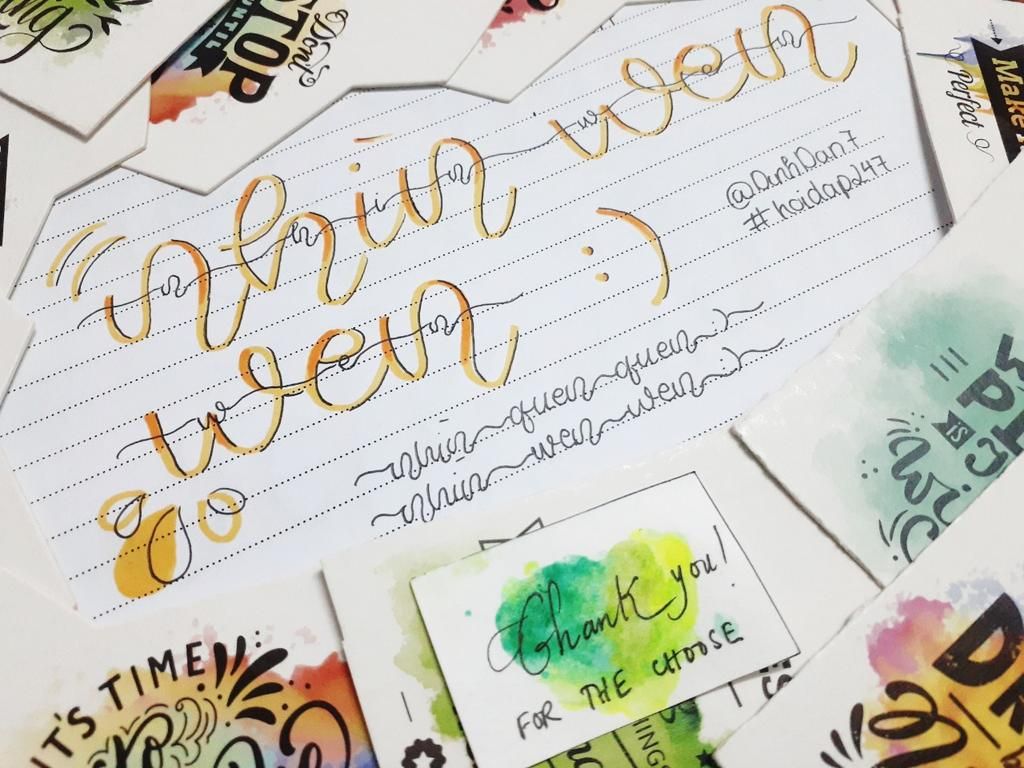 UNTIL
STOP
Don't
Make
Perfect
"nhìn wen
wen :)
@DanhDan7
#hoidap247
~nhìn~quen~quen~:)~
~nhìn~wen~wen~:)~
go
IS
Thank you!
FOR THE CHOOSE
IT'S TIME